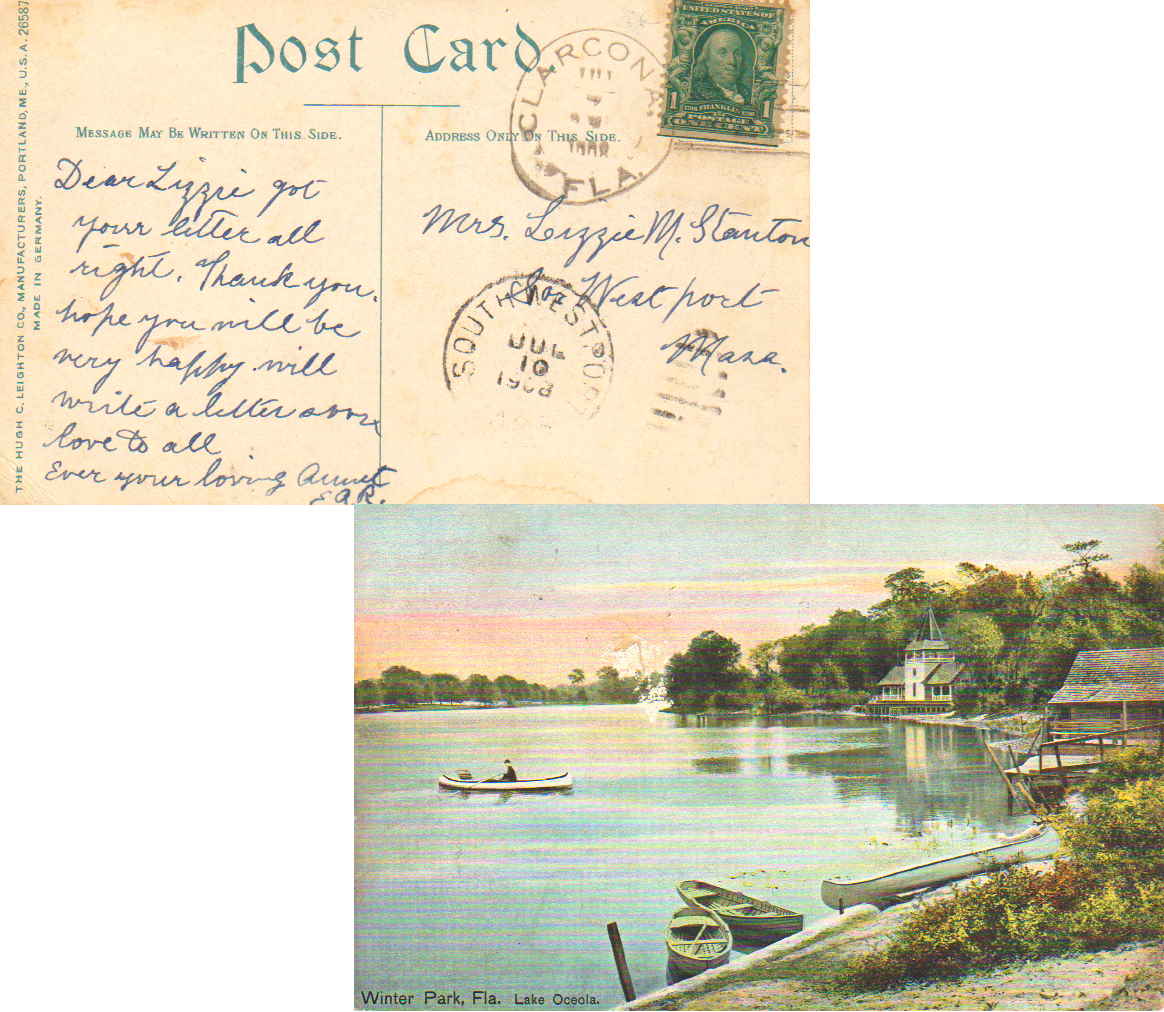 Post Card.
THE HUGH C. LEIGHTON CO., MANUFACTURERS, PORTLAND, ME., U.S.A. 26587
MADE IN GERMANY.
MESSAGE MAY BE WRITTEN ON THIS SIDE.
ADDRESS ONLY ON THIS SIDE.
CLARCONA
FLA.
UNITED STATES OF
AMERICA
1 FRANKLIN 1
POSTAGE
ONE CENT
Dear Lizzie got
your letter all
right. Thank you.
hope you will be
very happy will
write a letter soon
love to all
Ever your loving Aunt
E.A.R.
Mrs. Lizzie M. Stanton
So. West port
Mass.
SOUTH WESTPORT
JUL
10
1908
Winter Park, Fla. Lake Oceola.